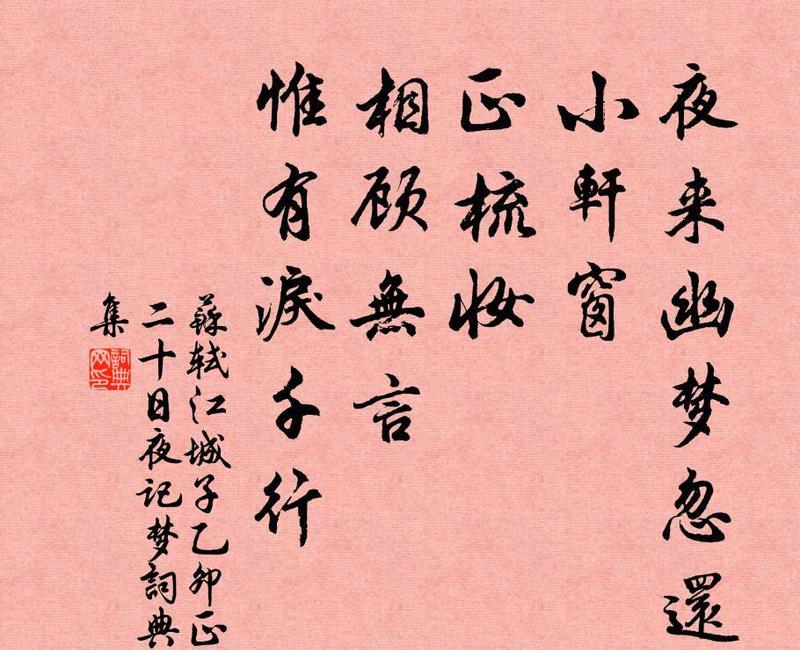 夜来幽梦忽還
小軒窗
正梳妆
相顾無言
惟有淚千行
蘇軾江城子乙卯正
二十日夜记梦詞典
集
詞典網印